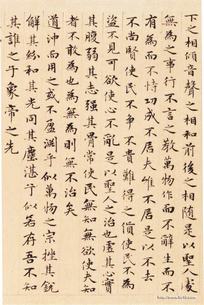 下之相傾音聲之相和前後之相隨是以聖人處
無為之事行不言之教萬物作而不辭生而不
有為而不恃功成不居夫唯不居是以不去
不尚賢使民不爭不貴難得之貨使民不為
盜不見可欲使心不亂是以聖人治也虛其心實
其腹弱其志強其骨常使民無知無欲使夫知
者不敢為也為無為則無不治矣
道沖而用之或不盈淵乎似萬物之宗挫其銳
解其紛和其光同其塵湛乎似若存吾不知
其誰之子象帝之先